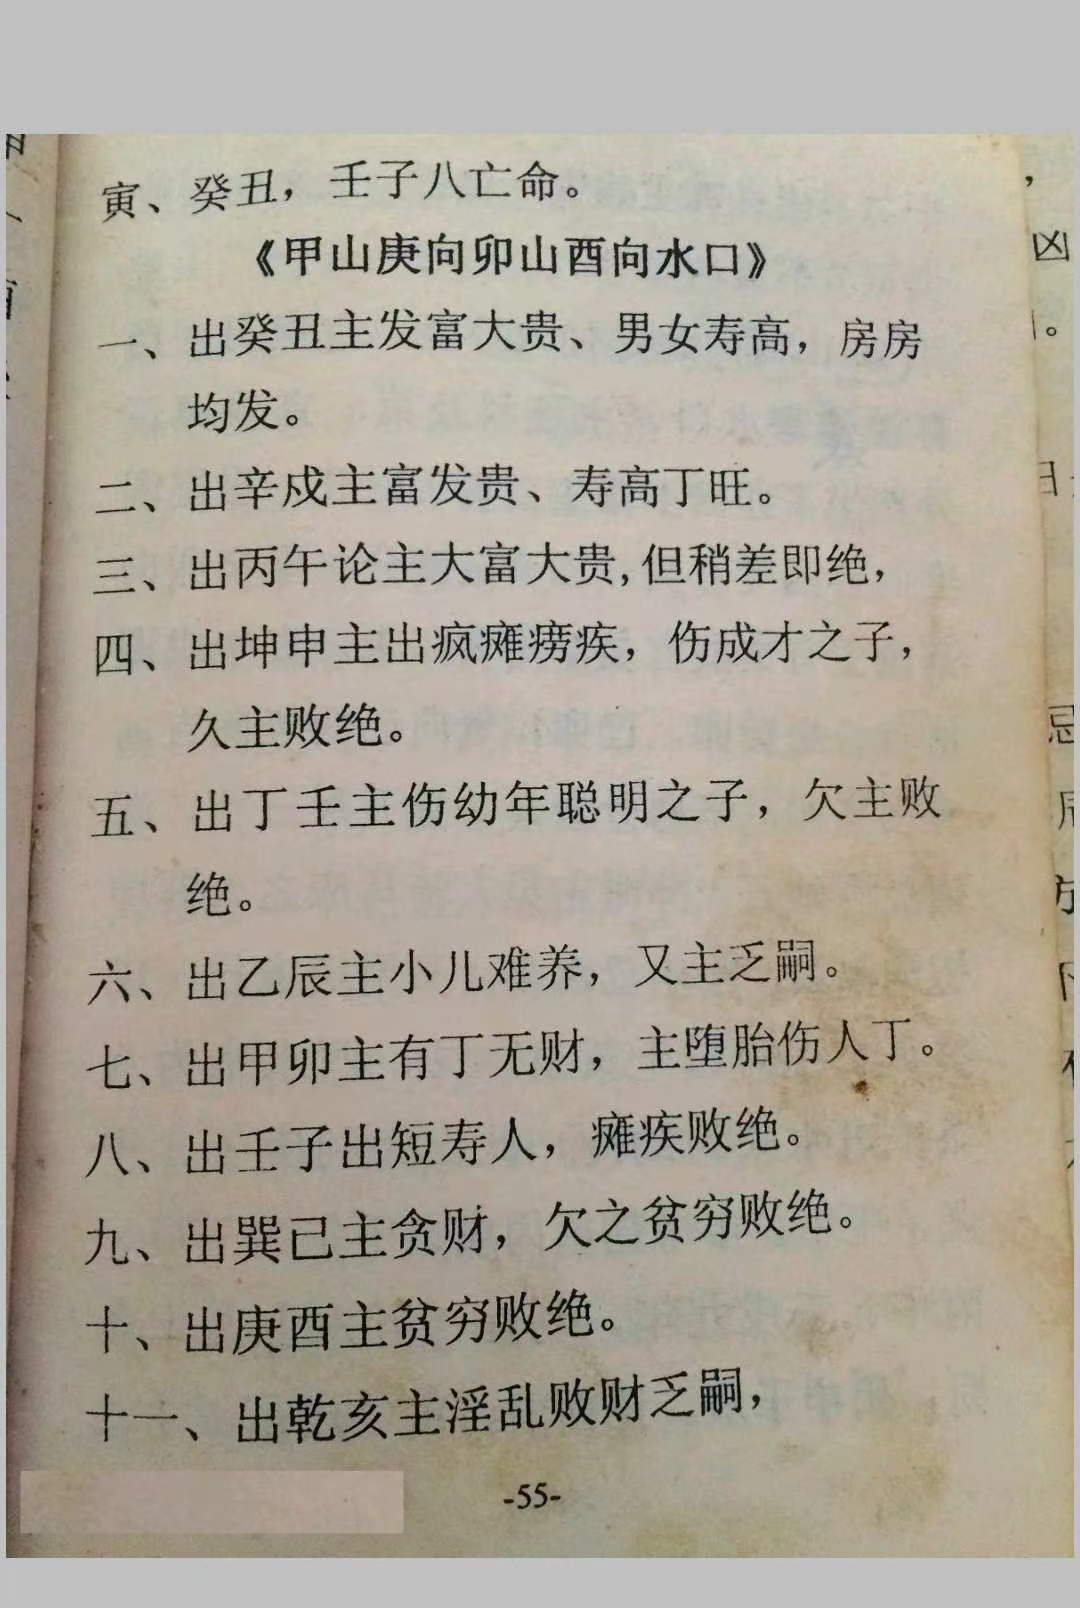 寅、癸丑，壬子八亡命。
《甲山庚向卯山酉向水口》
一、出癸丑主发富大贵、男女寿高，房房
均发。
二、出辛戍主富发贵、寿高丁旺。
三、出丙午论主大富大贵,但稍差即绝，
四、出坤申主出疯瘫痨疾，伤成才之子，
久主败绝。
五、出丁壬主伤幼年聪明之子，欠主败
绝。
六、出乙辰主小儿难养，又主乏嗣。
七、出甲卯主有丁无财，主堕胎伤人丁。
八、出壬子出短寿人，瘫疾败绝。
九、出巽己主贪财，欠之贫穷败绝。
十、出庚酉主贫穷败绝。
十一、出乾亥主淫乱败财乏嗣，
-55-